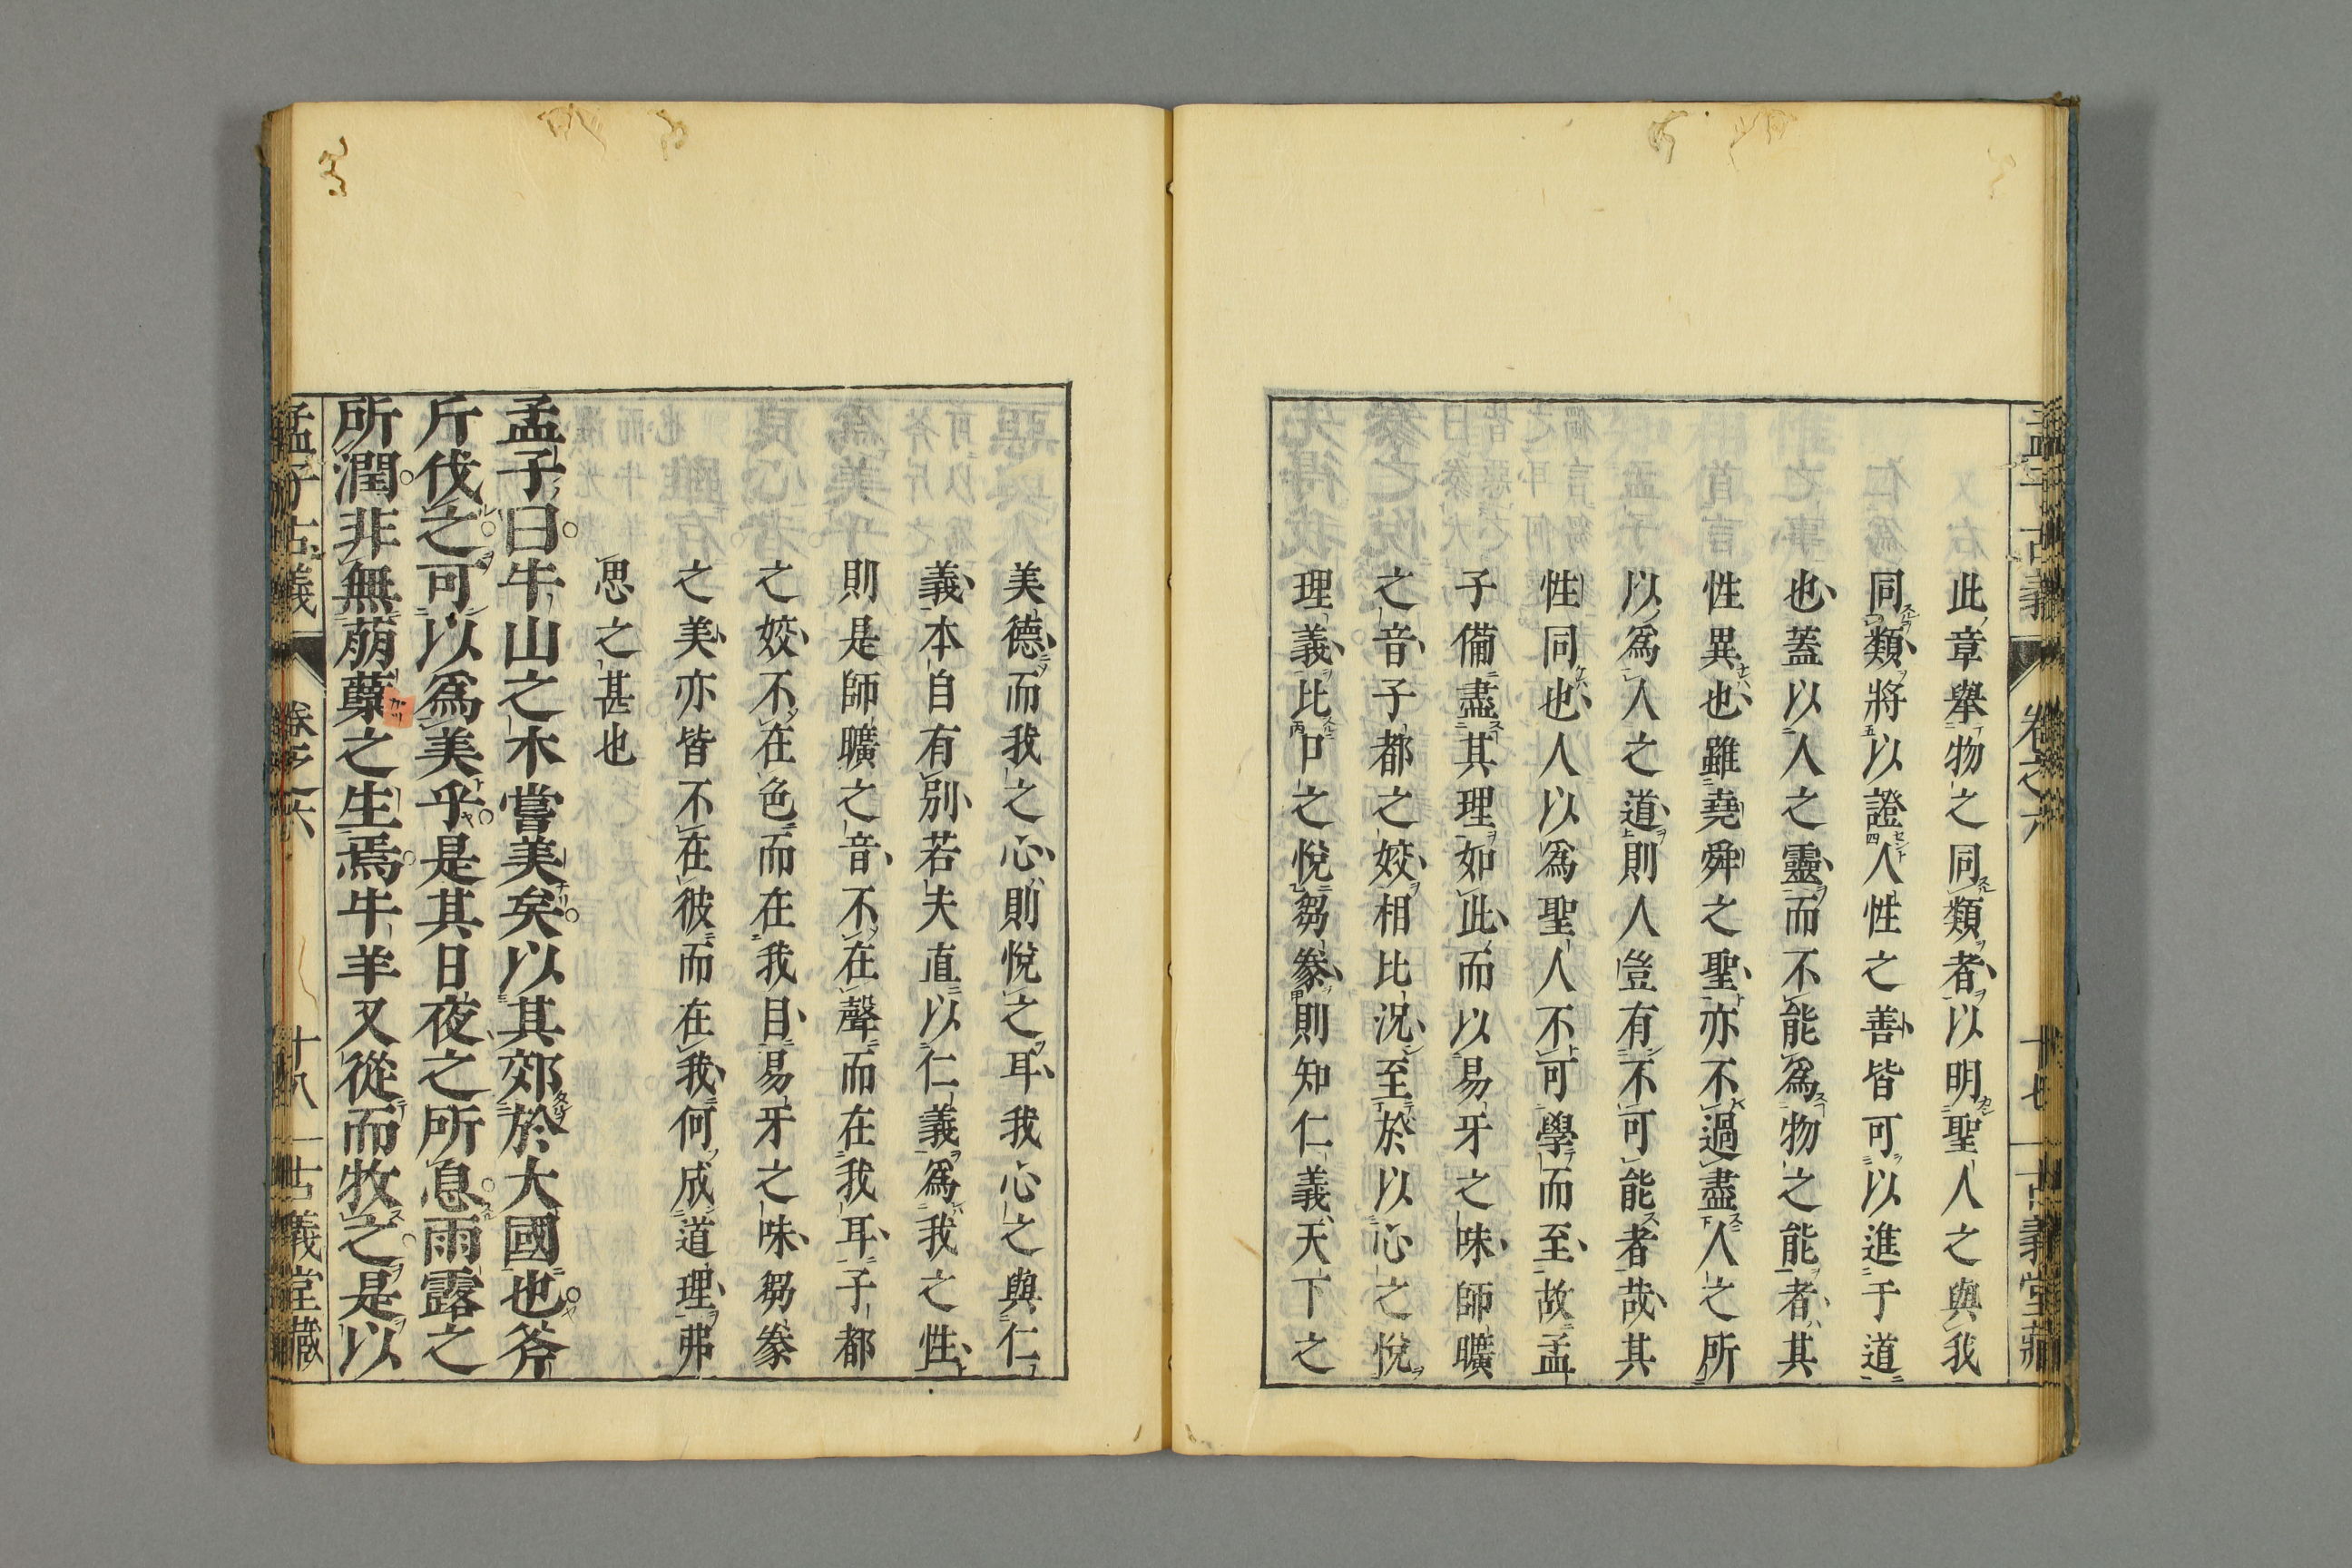 孟子古義 卷之六 十七 古義堂藏
此章舉物之同類者以明聖人之與我
同類將以證人性之善皆可以進于道
也蓋以人之靈而不能爲物之能者其
性異也雖堯舜之聖亦不過盡人之所
以爲人之道則人豈有不可能者哉其
性同也人以爲聖人不可學而至故孟
子備盡其理如此而以易牙之味師曠
之音子都之姣相比況至於以心之悅
理義比口之悅芻豢則知仁義天下之
美德而我之心則悅之耳我心之與仁
義本自有別若夫直以仁義爲我之性
則是師曠之音不在聲而在我耳子都
之姣不在色而在我目易牙之味芻豢
之美亦皆不在彼而在我何成道理弗
思之甚也
孟子曰牛山之木嘗美矣以其郊於大國也斧
斤伐之可以爲美乎是其日夜之所息雨露之
所潤非無萠蘖之生焉牛羊又從而牧之是以
孟子古義 卷之六 十八 古義堂藏